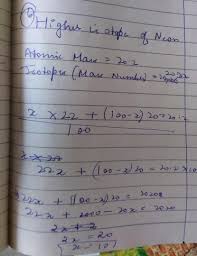 Higher isotope of Neon
Atomic Mass = 20.2
Isotopes (Mass Number) = 20, 22
x × 22 + (100-x) 20 = 20.2
100
22x + (100-x) 20 = 20.2 × 100
22x + (100-x) 20 = 2020
22x + 2000 - 20x = 2020
2x = 20
x = 10